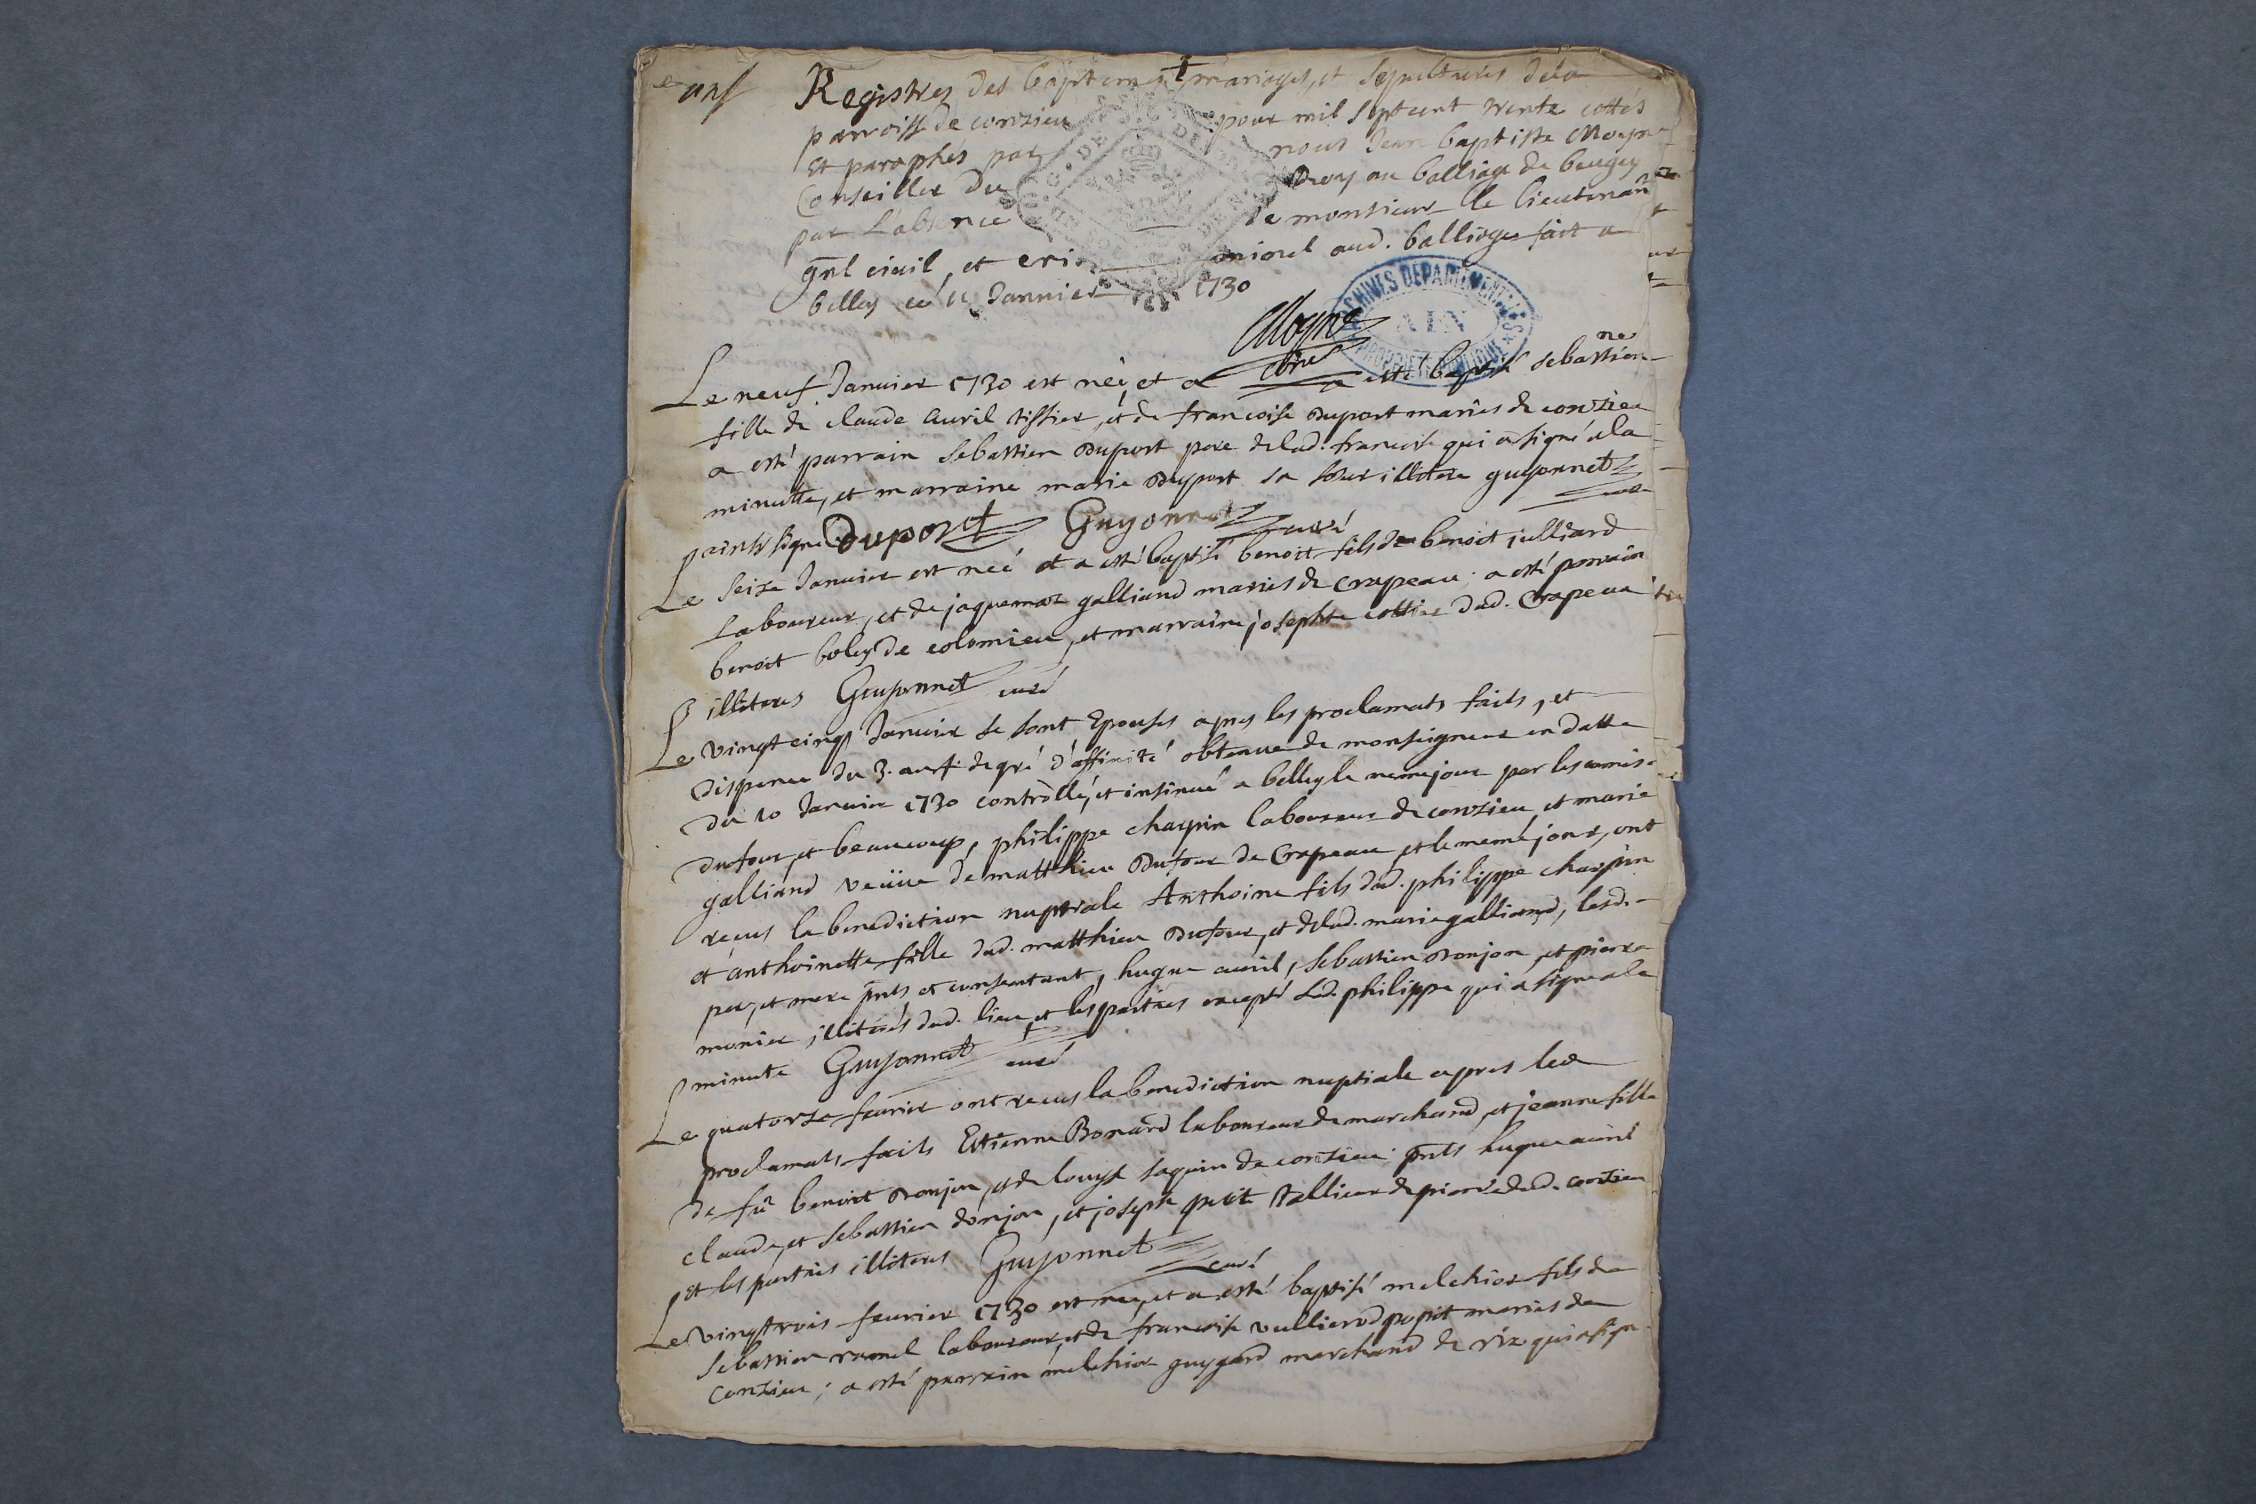 Registres des baptemes mariages, et sepultures dela
parroisse de conzieu pour mil sept cent trente cottés
Et paraphés par nous Jean baptiste Moyne
Conseiller du Roy au balliage de beugey
par Labsence de monsieur le lieutenant
gñl ciuil, et criminel aud. balliage fait a
belley ce Januier 1730
ARCHIVES DEPARTEMENTALES
AIN
PROPRIETE PUBLIQUE
Moyne
Le neuf Januier 1730 est neé, et a esté baptisé sebastienne
fille de claude auril tissier, et de francoise Duport mariés de conzieu
a esté parrain sebastien Duport pere delad. francoise qui a signé ala
minutte, et marraine marie Duport sa sœur illitere guyonnet
curé
Duport Guyonnet curé
Le seize Januier est neé et a esté baptisé benoit fils de benoit julliard
Laboureur, et de jaquemaz galliand mariés de Crapeau; a esté parrain
benoit boley de colomieu, et marraine josephte cottier dud. Crapeau
illiteres Guyonnet curé
Le vingt cinq Januier se sont Epousés apres les proclamats faits, et
dispence du 3. au 4. degré d'affinité obtenue de monseigneur en datte
du 10 Januier 1730 controllé, et insinué a belley le meme jour par les comis
dufour, et beaucoup, philippe charpin laboureur de conzieu et marie
galliand veüue de matthieu Dufour de Crapeau, et le meme jour, ont
receus la benediction nuptiale Anthoine fils dud. philippe charpin
et anthoinette fille dud. matthieu Dufour, et delad. marie galliand, lesd.
per, et mere pñts et consentant, hugue auril, sebastien Donjon, et pierre
monier illiterés dud. lieu, et les parties excepté led. philippe qui a signe ala
minute Guyonnet curé
Le quatorze feurier ont receus la benediction nuptiale apres les
proclamats faits Estienne Bonard laboureur de marchand, et jeanne fille
de fû benoit Donjon, et de louyse saquin de conzieu; pñts hugue auril
claude, et sebastien donjon, et joseph petit tallieur de pierre dud. conzieu
et les parties illiteres Guyonnet curé
Le vingt trois feurier 1730 est neé, et a esté baptisé melchior fils de
sebastien ramel laboureur, et de francoise vullierod pupit mariés de
Conzieu; a esté parrain melchior guygard marchand de rix qui a signe